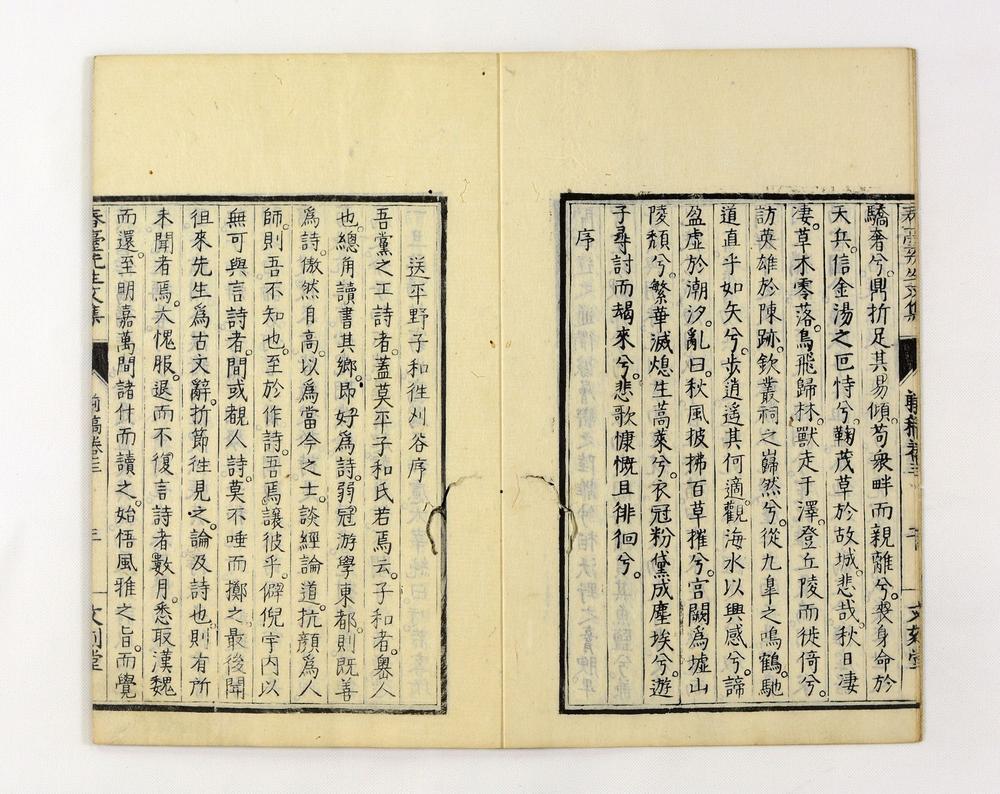 驕奢兮。鼎折足其易傾。苟衆畔而親離兮。喪身命於
天兵。信金湯之叵恃兮。鞠茂草於故城。悲哉。秋日凄
凄。草木零落。鳥飛歸林。獸走于澤。登丘陵而徙倚兮。
訪英雄於陳跡。欽叢祠之巋然兮。從九皐之鳴鶴。馳
道直乎如矢兮。步逍遥其何適。觀海水以興感兮。諦
盈虚於潮汐。亂曰。秋風披拂百草摧兮。宫闕爲墟山
陵頹兮。繁華滅熄生蒿萊兮。衣冠粉黛成塵埃兮。遊
子尋討而朅來兮。悲歌慷慨且徘徊兮。
序
送平野子和徃刈谷序
吾黨之工詩者。蓋莫平子和氏若焉云。子和者。嶴人
也。總角讀書其鄉。即好爲詩。弱冠游學東都。則既善
爲詩。傲然自高。以爲當今之士。談經論道。抗顔爲人
師。則吾不知也。至於作詩。吾焉讓彼乎。僻倪宇内以
無可與言詩者。間或觀人詩。莫不唾而擲之。最後聞
徂來先生爲古文辭。折節徃見之。論及詩也。則有所
未聞者焉。大愧服。退而不復言詩者數月。悉取漢魏
而還。至明嘉萬間諸什而讀之。始悟風雅之旨。而覺
春臺先生文集
前稿卷三
三
文刻堂